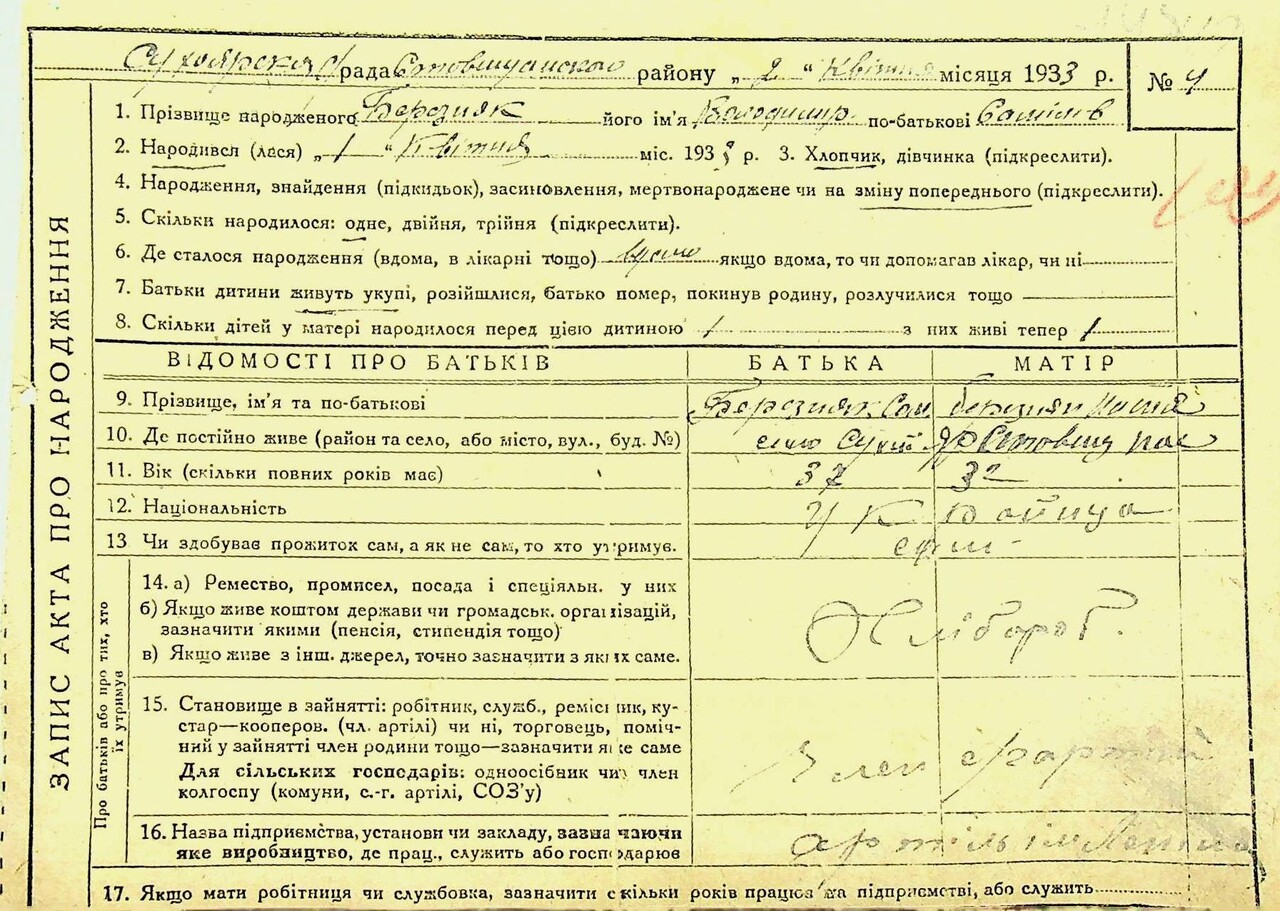 Сухоярская рада Ставищанского району „ 2 “ Квітня місяця 1933 р.
№ 4
1. Прізвище народженого Березняк його ім'я Володимир по-батькові Самілів
2. Народився (лася) „ 1 “ Квітня міс. 1933 р. 3. Хлопчик, дівчинка (підкреслити).
4. Народження, знайдення (підкидьок), засиновлення, мертвонароджене чи на зміну попереднього (підкреслити).
5. Скільки народилося: одне, двійня, трійня (підкреслити).
6. Де сталося народження (вдома, в лікарні тощо) якщо вдома, то чи допомагав лікар, чи ні
7. Батьки дитини живуть укупі, розійшлися, батько помер, покинув родину, розлучилися тощо
8. Скільки дітей у матері народилося перед цією дитиною 1 з них живі тепер 1
ЗАПИС АКТА ПРО НАРОДЖЕННЯ
ВІДОМОСТІ ПРО БАТЬКІВ БАТЬКА МАТІР
9. Прізвище, ім'я та по-батькові Березняк Сам Березняк
10. Де постійно живе (район та село, або місто, вул., буд. №) село Сухий Яр
11. Вік (скільки повних років має) 37 32
12. Національність
13 Чи здобував прожиток сам, а як не сам, то хто утримує.
Про батьків або про тих, хто їх утримує
14. а) Ремество, промисел, посада і спеціяльн. у них
б) Якщо живе коштом держави чи громадськ. організацій,
зазначити якими (пенсія, стипендія тощо) Хлібороб.
в) Якщо живе з інш. джерел, точно зазначити з яких саме.
15. Становище в зайнятті: робітник, служб., ремісник, ку-
стар—кооперов. (чл. артілі) чи ні, торговець, поміч-
ний у зайнятті член родини тощо—зазначити яке саме
Для сільських господарів: одноосібник чи член Член
колгоспу (комуни, с.-г. артілі, СОЗ'у)
16. Назва підприємства, установи чи закладу, зазначаючи
яке виробництво, де прац., служить або господарює артіль ім Леніна
17. Якщо мати робітниця чи службовка, зазначити скільки років працює на підприємстві, або служить